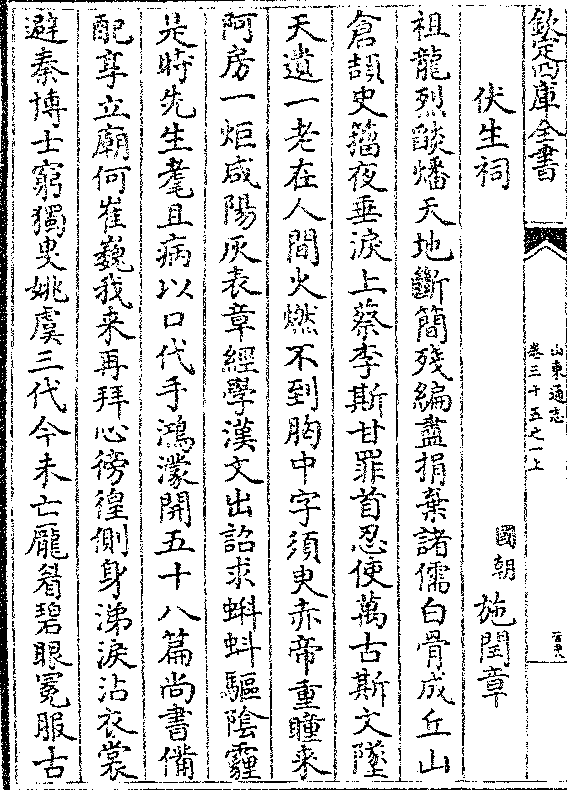 欽定四庫全書
山東通志
卷三十五之一上
伏生祠
國朝 施閏章
祖龍烈燄燔天地斷簡殘編盡捐棄諸儒白骨成丘山
倉頡史籀夜垂淚上蔡李斯甘罪首忍使萬古斯文墜
天遺一老在人間火燃不到胸中字須臾赤帝重瞳来
阿房一炬咸陽灰表章經學漢文出詔求蝌蚪驅陰霾
是時先生耄且病以口代手鴻濛開五十八篇尚書備
配享立廟何崔巍我来再拜心徬徨側身涕淚沾衣裳
避秦博士窮獨叟姚虞三代今未亡龎眉碧眼冕服古